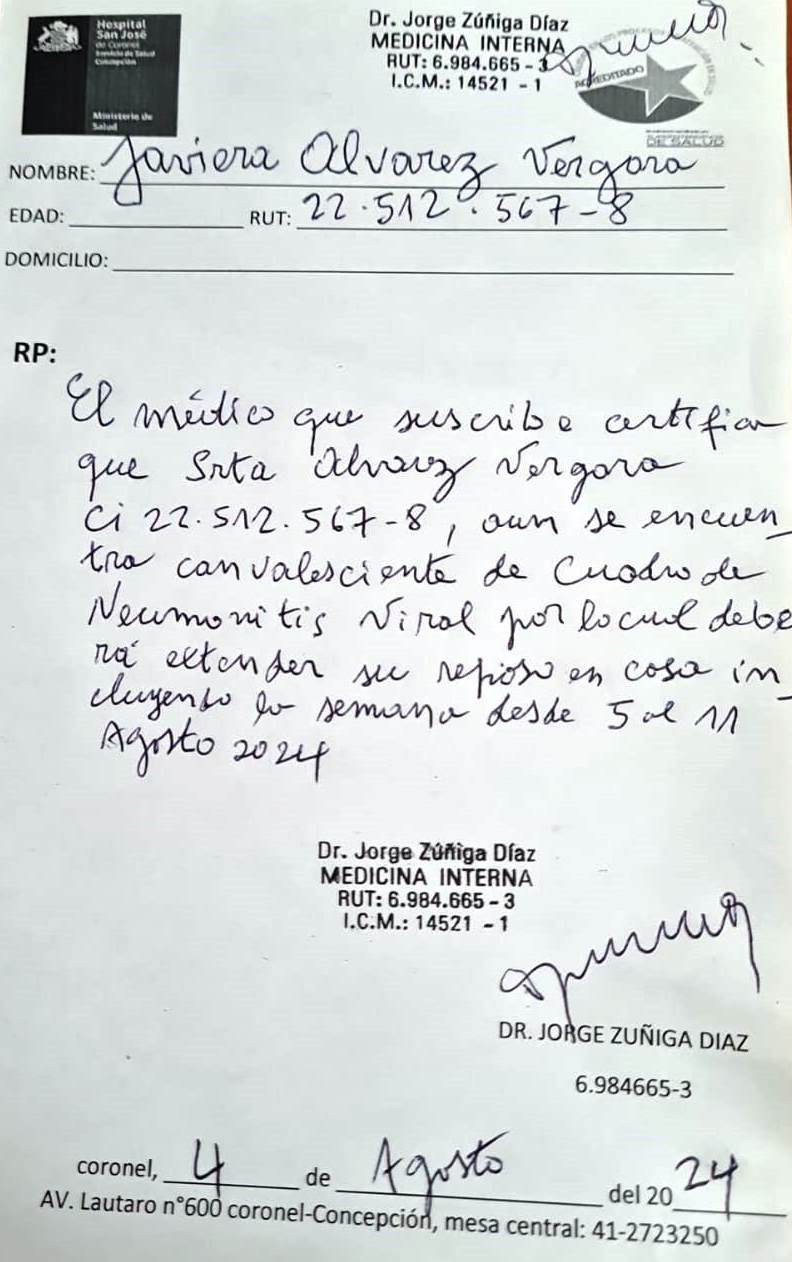 Hospital
San José
de Coronel
Servicio de Salud
Concepción
Ministerio de
Salud
Dr. Jorge Zúñiga Díaz
MEDICINA INTERNA
RUT: 6.984.665 - 3
I.C.M.: 14521 - 1
ACREDITADO
DE SALUD
NOMBRE: Javiera Alvarez Vergara
EDAD: RUT: 22.512.567-8
DOMICILIO:
RP:
El médico que suscribe certifica
que Srta Alvarez Vergara
Ci 22.512.567-8, aun se encuen_
tra convalesciente de Cuadro de
Neumonitis Viral por lo cual debe
rá extender su reposo en casa in_
cluyendo la semana desde 5 al 11
Agosto 2024
Dr. Jorge Zúñiga Díaz
MEDICINA INTERNA
RUT: 6.984.665 - 3
I.C.M.: 14521 - 1
DR. JORGE ZUÑIGA DIAZ
6.984665-3
coronel, 4 de Agosto del 2024
AV. Lautaro n°600 coronel-Concepción, mesa central: 41-2723250